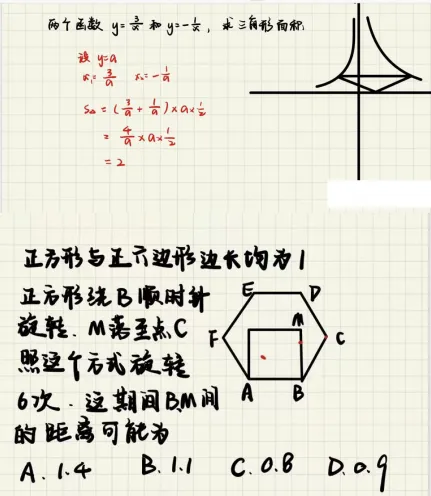 两个函数 y=3/x 和 y=-1/x, 求三角形面积
设 y=a
x₁=3/a x₂=-1/a
S△=(3/a+1/a)×a×1/2
=4/a×a×1/2
=2
正方形与正六边形边长均为1
正方形绕B顺时针
旋转.M落至点C
照这个方式旋转
6次.这期间B,M间
的距离可能为
E D
M
F C
A B
A.1.4 B.1.1 C.0.8 D.0.9